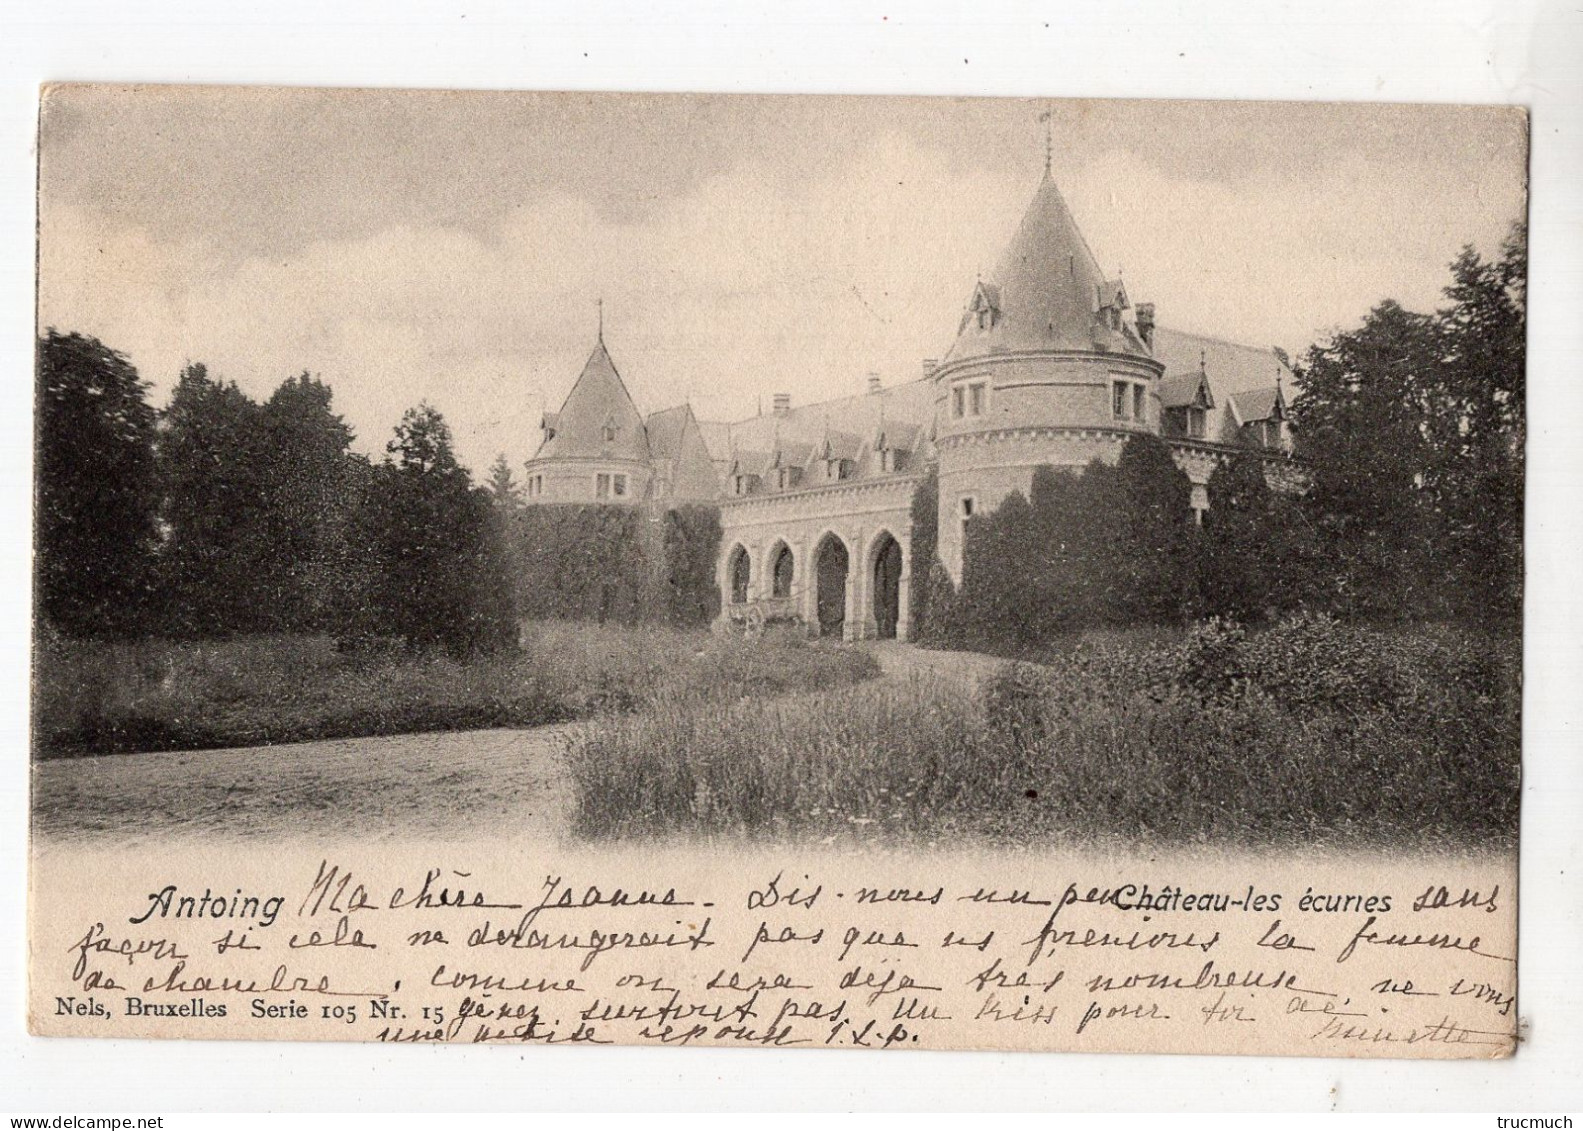 Antoing Ma chère Jeanne. Dis-nous un peu Château-les écuries sans
façon si cela ne derangerait pas que ns prenions la femme
de chambre, comme on sera déja très nombreuse, ne vous
Nels, Bruxelles Serie 105 Nr. 15 gênez surtout pas. Un kiss pour toi de
une petite reponse s.v.p. Minette
trucmuch